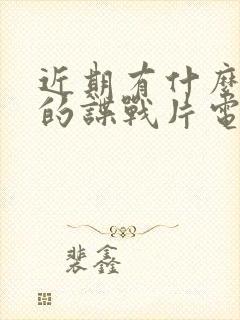 近期有什麼
的諜戰片電
裴鑫